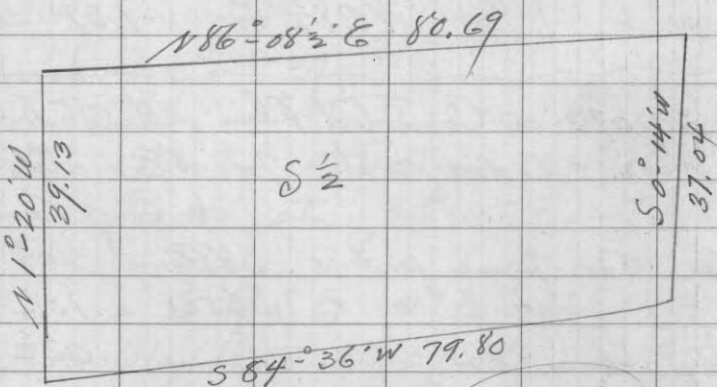 N 86°-08½' E 80.69
N 1°-20' W
39.13
S ½
S 0°-14' W
37.04
S 84°-36' W 79.80